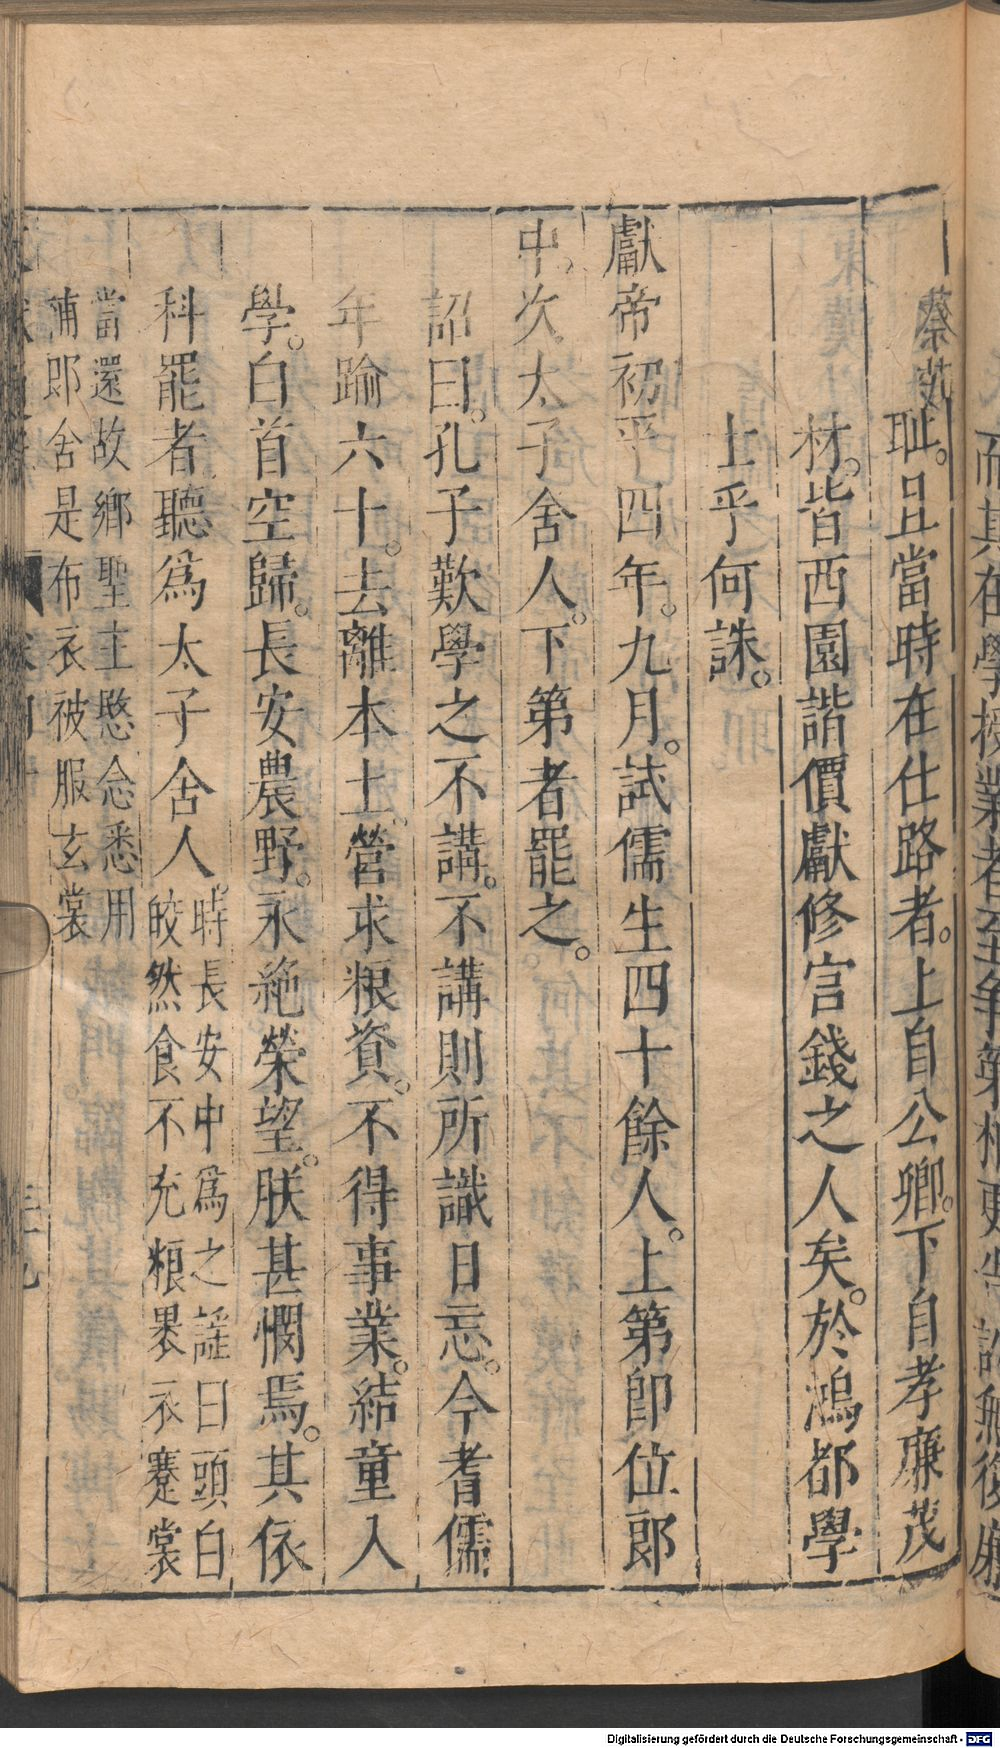 而其在學授業者至年第相更告訟無復廉
恥。且當時在仕路者。上自公卿。下自孝廉茂
材。皆西園諧價獻修宮錢之人矣。於鴻都學
士乎何誅。
獻帝初平四年。九月。試儒生四十餘人。上第卽位郎
中。次太子舍人。下第者罷之。
詔曰。孔子歎學之不講。不講則所識日忘。今耆儒
年踰六十。去離本土。營求粮資。不得事業。結童入
學。白首空歸。長安農野。永絕榮望。朕甚憫焉。其依
科罷者聽爲太子舍人。
時長安中爲之謡曰頭白
皎然食不充粮褁衣蹇裳
當還故鄉聖主愍念悉用
補郎舍是布衣被服玄裳
蔡茂
卷四十
三十九
Digitalisierung gefördert durch die Deutsche Forschungsgemeinschaft - DFG